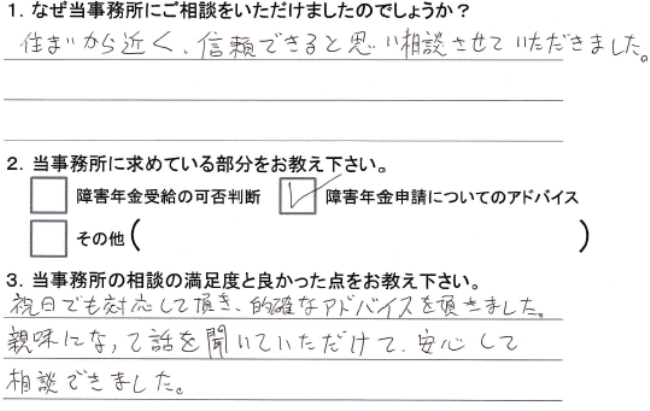 1. なぜ当事務所にご相談をいただけましたのでしょうか？
住まいから近く、信頼できると思い相談させていただきました。
2. 当事務所に求めている部分をお教え下さい。
障害年金受給の可否判断 障害年金申請についてのアドバイス
その他( )
3. 当事務所の相談の満足度と良かった点をお教え下さい。
祝日でも対応して頂き、的確なアドバイスを頂きました。
親味になって話を聞いていただけて、安心して
相談できました。